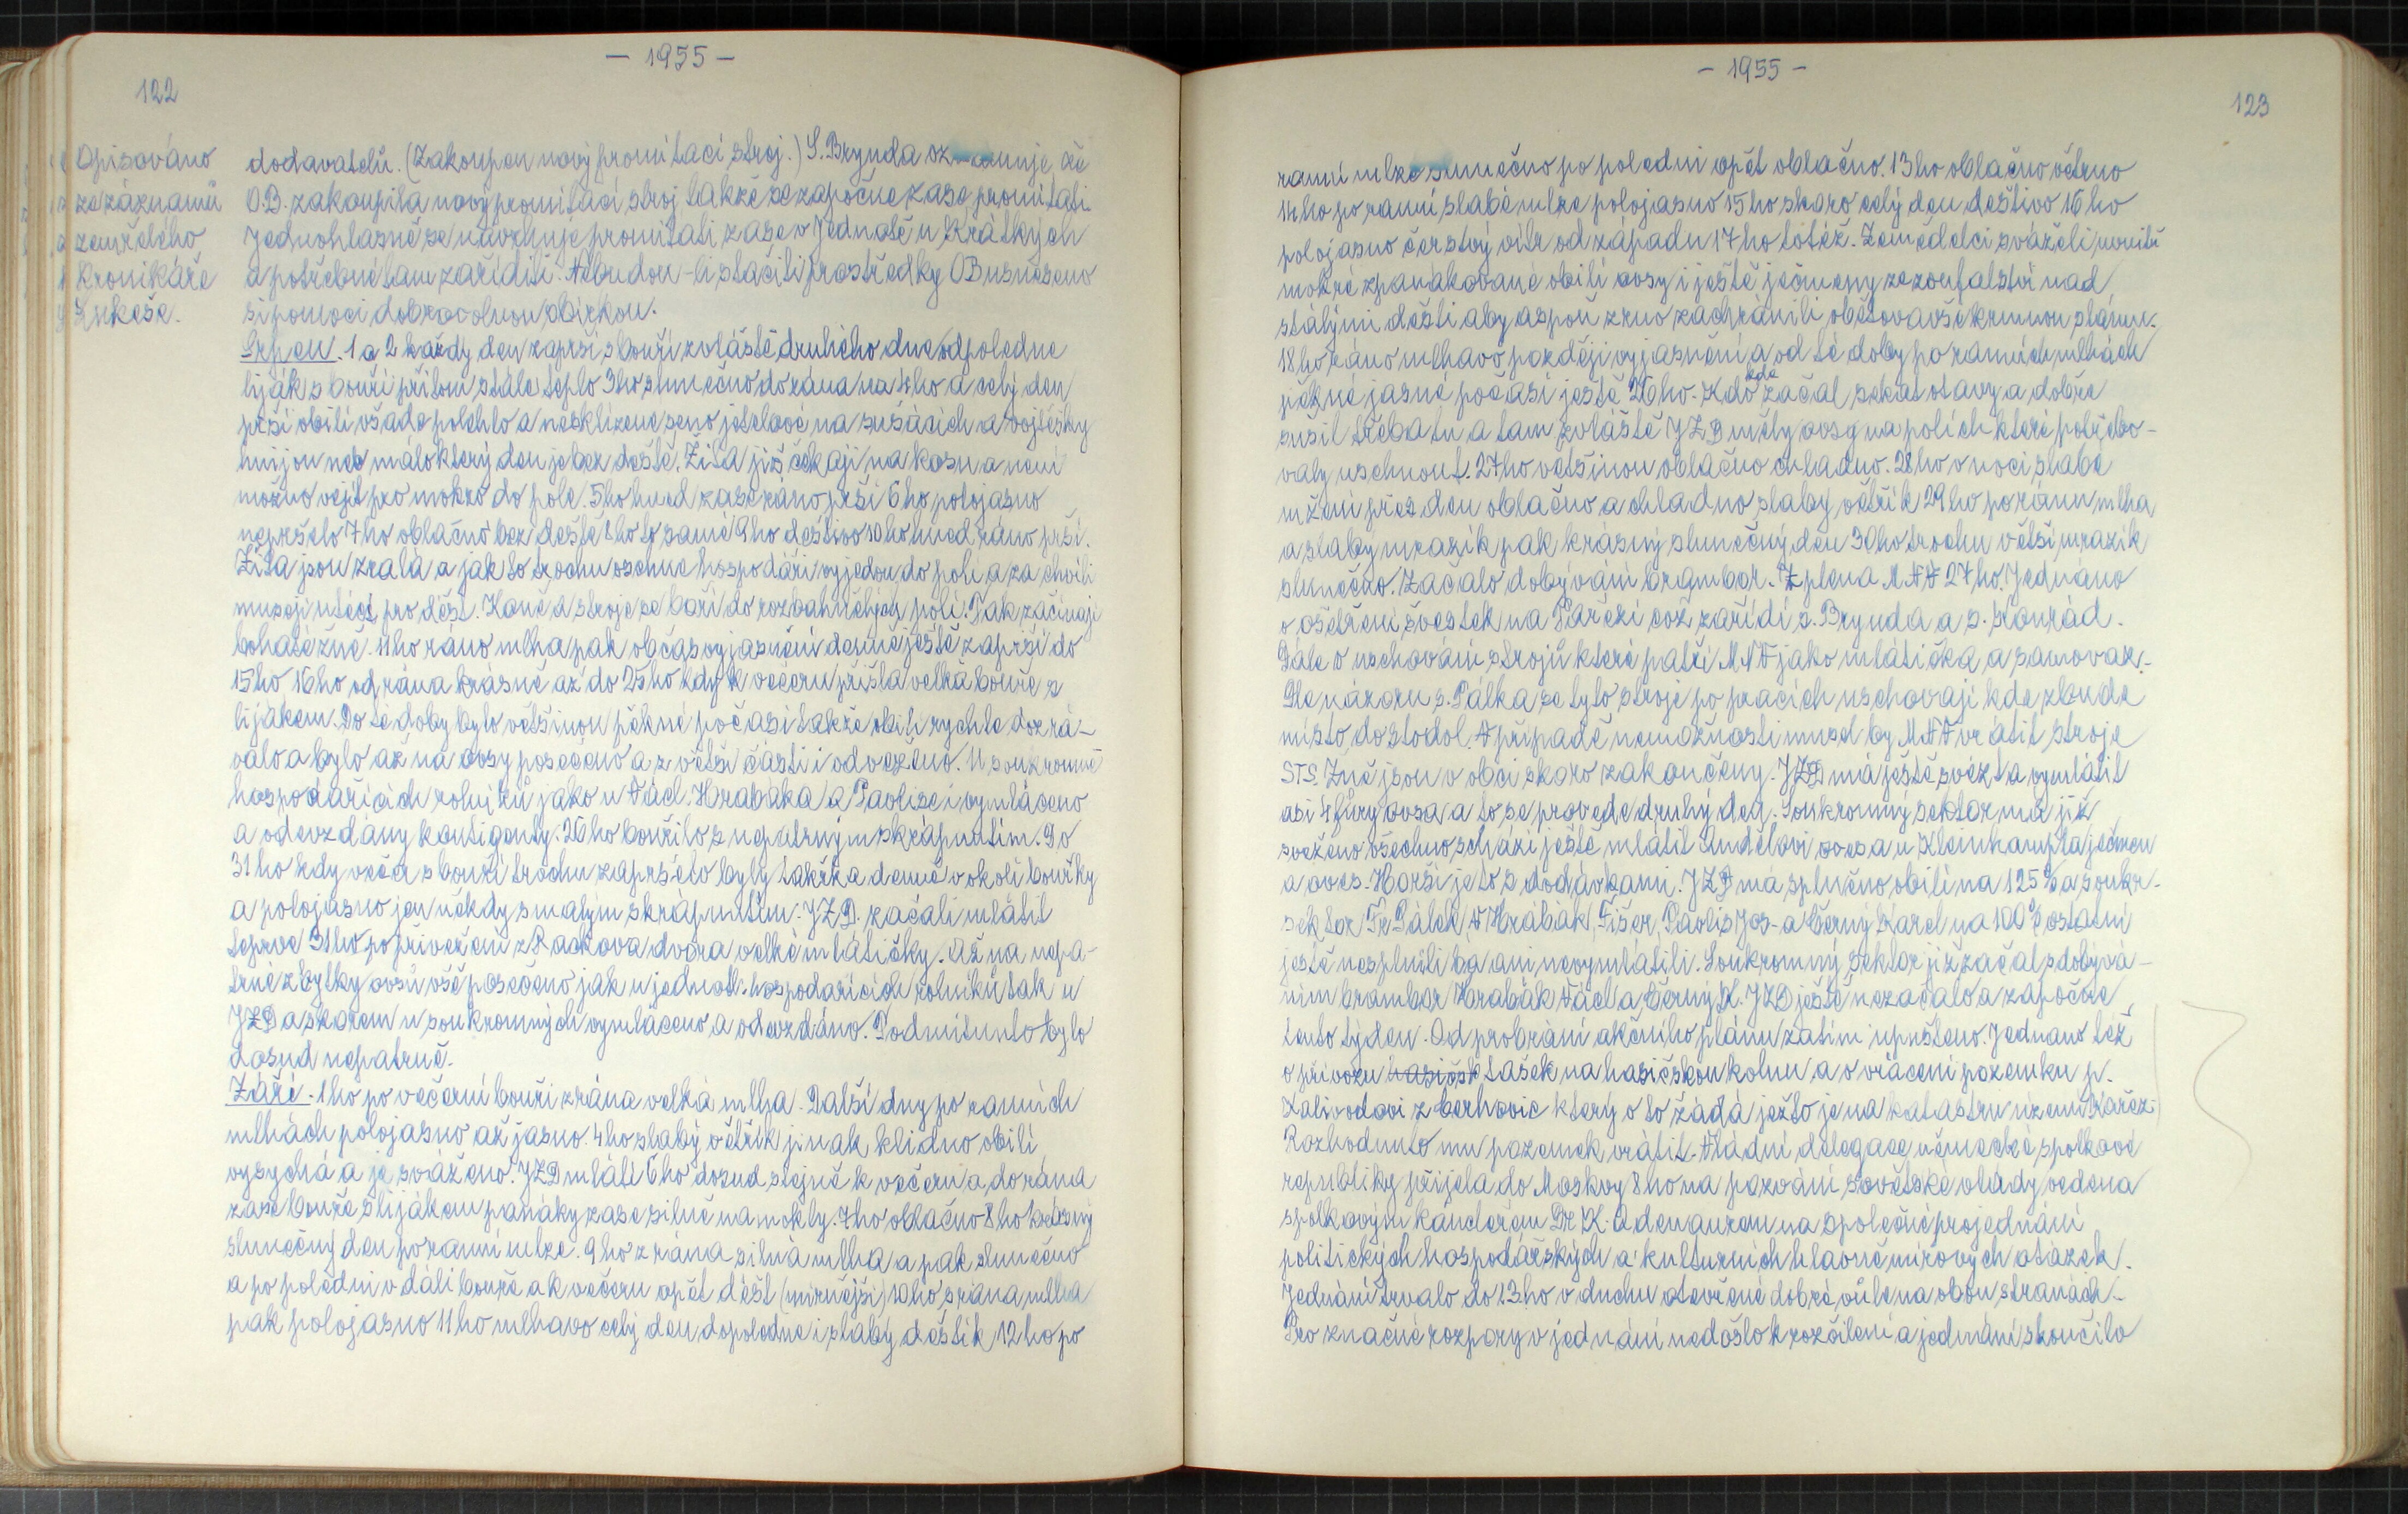 - 1955 -
122
Opisováno
ze záznamů
zemřelého
kronikáře
Lukeše.
dodavatelů. (Zakoupen nový promítací stroj.) S. Brynda oznamuje že
O.B. zakoupila nový promítací stroj takže se započne zase promítati.
Jednohlasně se navrhuje promítati zase v Jednatě u Krátkých
a potřebné tam zaříditi. Nebudou-li stačiti prostředky OB usneseno
si pomoci dobrovolnou sbírkou.
Srpen. 1 a 2 každý den zaprší s bouří zvláště druhého dne odpoledne
liják s bouří přitom stále teplo 3ho slunečno do rána na 4ho a celý den
prší obilí všade polehlo a nesklizené seno jetelové na sušácích a vojtěšky
hnijou neb málokterý den je bez deště. Žita již čekají na kosu a není
možno vejít pro mokro do pole. 5ho hned zase ráno prší 6ho polojasno
nepršelo 7ho oblačno bez deště 8ho to samé 9ho deštivo 10ho hned ráno prší.
Žita jsou zralá a jak to trochu oschne hospodáři vyjedou do polí a za chvíli
musejí utéci pro déšť. Koně a stroje se boří do rozbahněných polí. Tak začínají
bohaté žně. 11ho ráno mlha pak občas vyjasnění denně ještě zaprší do
15ho 16ho od rána krásně až do 25ho kdy k večeru přišla velká bouře s
lijákem. Do té doby bylo většinou pěkné počasí takže obilí rychle dozrá-
válo a bylo až na ovsy posečeno a z větší části i odvezeno. U soukromně
hospodařících rolníků jako u Václ. Hrabáka a Pavlise i vymláceno
a odevzdány kontigenty. 26ho bouřilo s nepatrným skrápnutím. Do
31ho kdy večer s bouří trochu zapršelo byly takřka denně v okolí bouřky
a polojasno jen někdy s malým skrápnutím. JZD. začali mlátit
teprve 31ho po přivezení z Rackova dvora velké mlátičky. Až na nepa-
trné zbytky ovsů vše posečeno jak u jednotl. hospodařících rolníků tak u
JZD a skorem u soukromných vymláceno a odevzdáno. Podmítnuto bylo
dosud nepatrně.
Září. 1ho po večerní bouři zrána velká mlha. Další dny po ranních
mlhách polojasno až jasno. 4ho slabý větřík jinak klidno obilí
vysychá a je sváženo. JZD mlátí 6ho dosud stejně k večeru a do rána
zase bouře s lijákem panáky zase silně namokly. 7ho oblačno 8ho krásný
slunečný den po ranní mlze. 9ho z rána silná mlha a pak slunečno
a po poledni v dáli bouře a k večeru opět déšť (mírnější) 10ho z rána mlha
pak polojasno 11ho mlhavo celý den dopoledne i slabý deštík 12ho po
- 1955 -
123
ranní mlze slunečno po poledni opět oblačno. 13ho oblačno větrno
14ho po ranní slabé mlze polojasno 15ho skoro celý den deštivo 16ho
polojasno čerstvý vítr od západu 17ho totéž. Zemědelci sváželi uvnitř
mokré zpanákované obilí ovsy i ještě ječmeny ze zoufalství nad
stálými dešti aby aspoň zrno zachránili obětovavše krmnou slámu.
18ho ráno mlhavo později vyjasnění a od té doby po ranních mlhách
pěkné jasné počasí ještě 26ho. Kdo kde začal sekat otavy a dobře
sušil třeba tu a tam zvláště JZD měly ovsy na polích které potřebo-
valy uschnout. 27ho většinou oblačno chladno. 28ho v noci slabé
mžení přes den oblačno a chladno slabý větřík 29ho po ránu mlha
a slabý mrazík pak krásný slunečný den 30ho trochu větší mrazík
slunečno. Začalo dobývání brambor. Z plena MNV 27ho. Jednáno
o ošetření švestek na Pařezí což zařídí s. Brynda a s. Konrád.
Dále o uschování strojů které patří MNV jako mlátička a samovaz.
Dle názoru s. Pálka se tyto stroje po pracích uschovají kde zbude
místo do stodol. V případě nemožnosti musel by MNV vrátit stroje
STS. Žně jsou v obci skoro zakončeny. JZD má ještě svézt a vymlátit
asi 4 fůry ovsa a to se provede druhý den. Soukromný sektor má již
svezeno všechno schází ještě mlátit Andělovi oves a u Kleinhampla ječmen
a oves. Horší je to s dodávkami. JZD má splněno obilí na 125% a soukr.
sektor Fr Pálek, V Hrabák, Fišer, Pavlis Jos. a Černý Karel na 100% ostatní
ještě nesplnili ba ani nevymlátili. Soukromný sektor již začal s dobývá-
ním brambor Hrabák Václ a Černý K. JZD ještě nezačalo a započne
tento týden. Od probrání akčního plánu zatím upuštěno. Jednáno též
o přívozu hasičsk tašek na hasičskou kolnu, a o vrácení pozemku p.
Zalivodovi z Cerhovic který o to žádá ježto je na katastru území Kařezi
Rozhodnuto mu pozemek vrátit. Vládní delegace německé spolkové
republiky přijela do Moskvy 8ho na pozvání sovětské vlády vedena
spolkovým kancléřem Dr K. Adenaurem na společné projednání
politických hospodářských a kulturních hlavně mírových otázek.
Jednání trvalo do 13ho v duchu otevřené dobré vůle na obou stranách.
Pro značné rozpory v jednání nedošlo k rozčílení a jednání skončilo